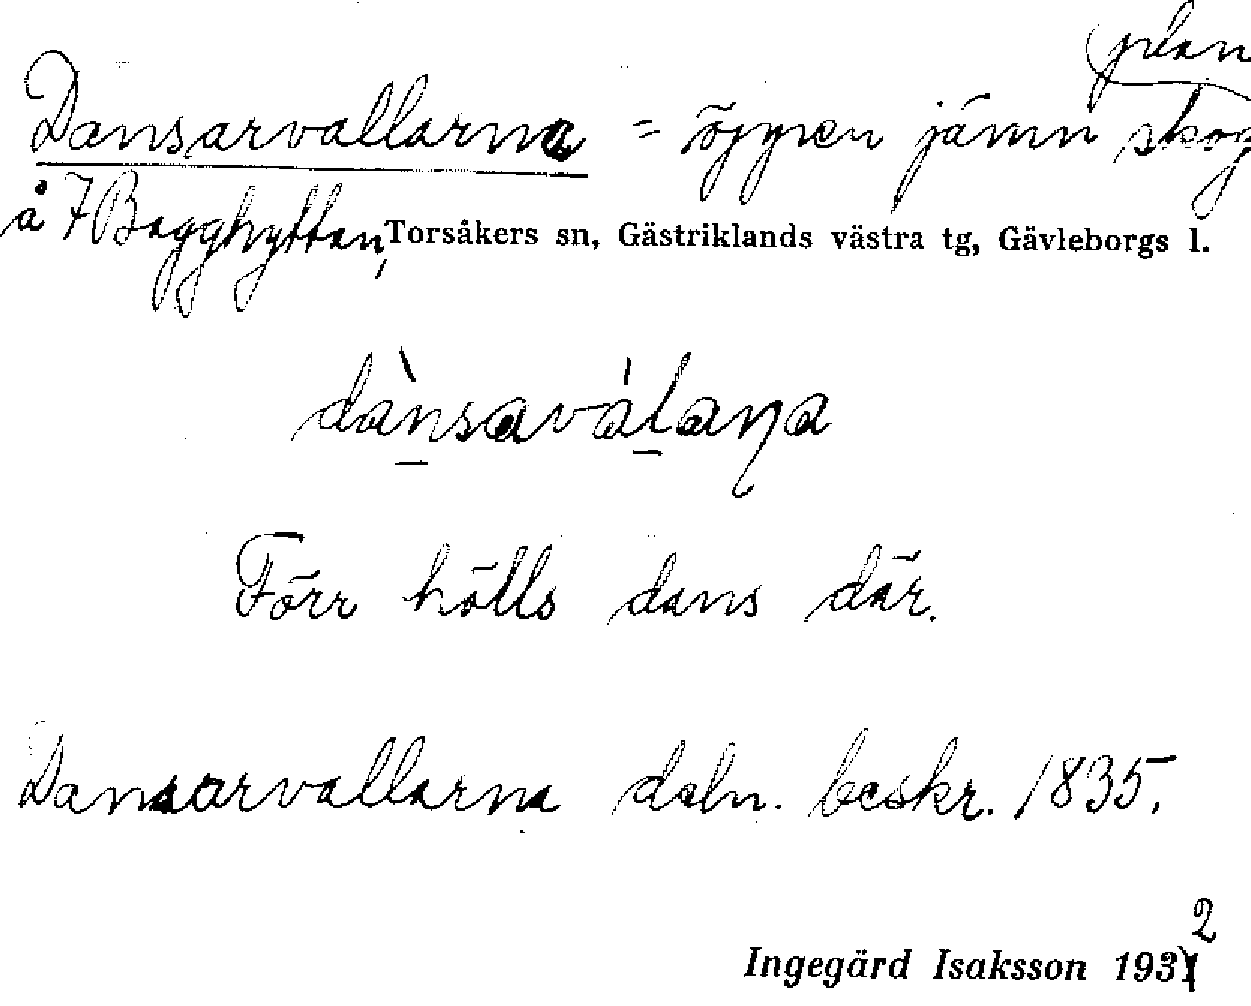 Dansarvallarna = öppen jämn skog
plan
å 7 Bagghyttan, Torsåkers sn, Gästriklands västra tg, Gävleborgs l.
dànsaválaɳa
Förr hölls dans där.
Dansarvallarna deln. beskr. 1835.
Ingegärd Isaksson 1932